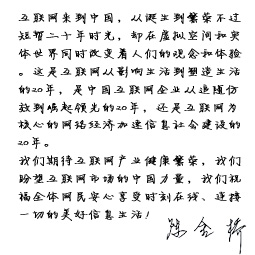 互联网来到中国，从诞生到繁荣不过
短暂二十年时光，却在虚拟空间和实
体世界同时改变着人们的观念和体验
。这是互联网从影响生活到塑造生活
的20年，是中国互联网企业从追随仿
效到崛起领先的20年，还是互联网为
核心的网络经济加速信息社会建设的
20年。
我们期待互联网产业健康繁荣，我们
盼望互联网市场的中国力量，我们祝
福全体网民安心享受时刻在线、连接
一切的美好信息生活！